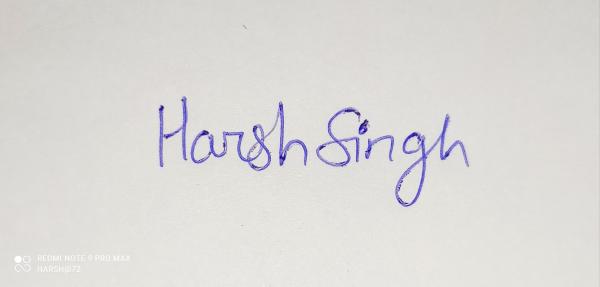 Harsh Singh
REDMI NOTE 9 PRO MAX
HARSH@72